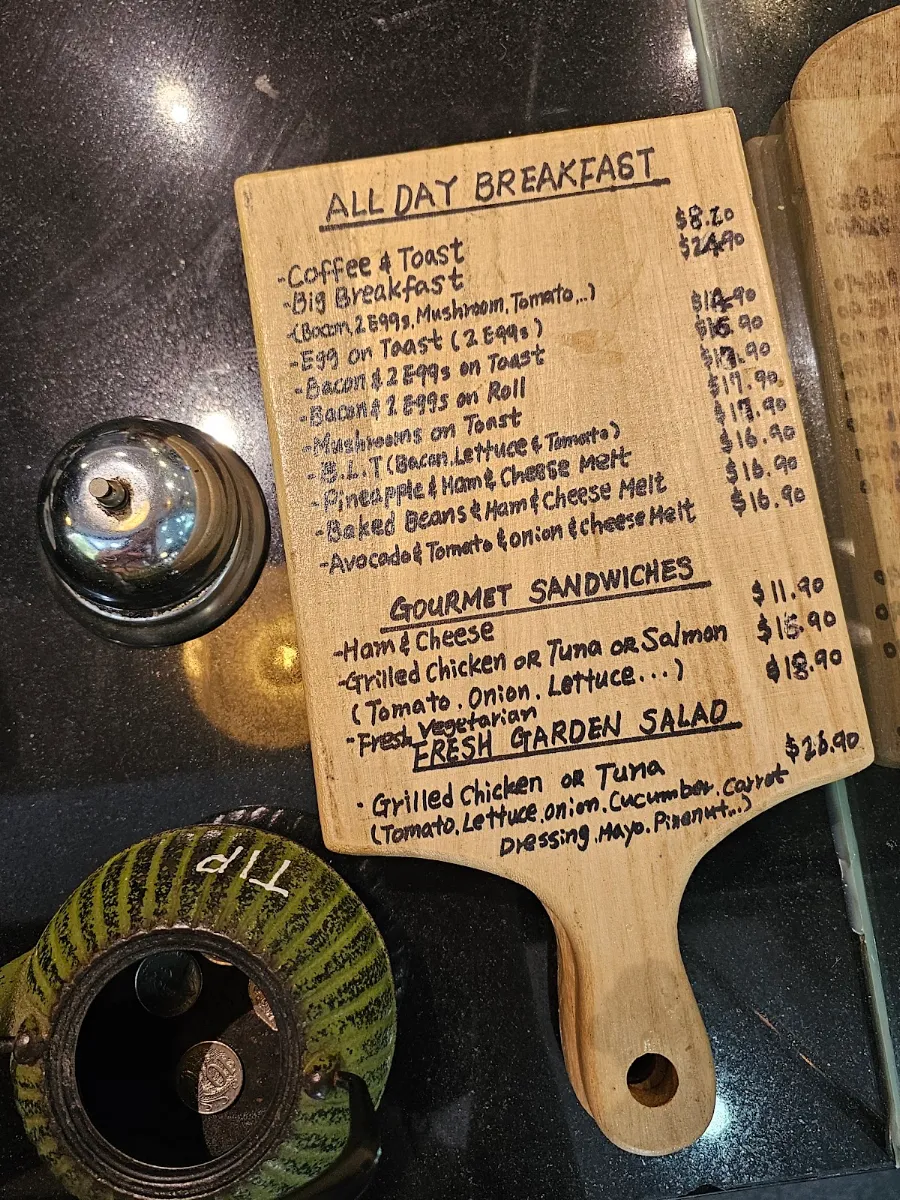 ALL DAY BREAKFAST
-Coffee & Toast $8.20
-Big Breakfast $24.90
(Bacon, 2 Eggs, Mushroom, Tomato...)
-Egg on Toast (2 Eggs) $14.90
-Bacon & 2 Eggs on Toast $16.90
-Bacon & 2 Eggs on Roll .90
-Mushrooms on Toast $17.90
-B.L.T (Bacon.Lettuce & Tomato) $17.90
-Pineapple & Ham & Cheese Melt $16.90
-Baked Beans & Ham & Cheese Melt $16.90
-Avocado & Tomato & onion & cheese Melt $16.90
GOURMET SANDWICHES
-Ham & Cheese $11.90
-Grilled Chicken OR Tuna OR Salmon
(Tomato. Onion. Lettuce...) $18.90
-Fresh Vegetarian
FRESH GARDEN SALAD
· Grilled Chicken OR Tuna $26.90
(Tomato.Lettuce.onion.Cucumber.Carrot
Dressing.Mayo.Pinenut...)
TIP